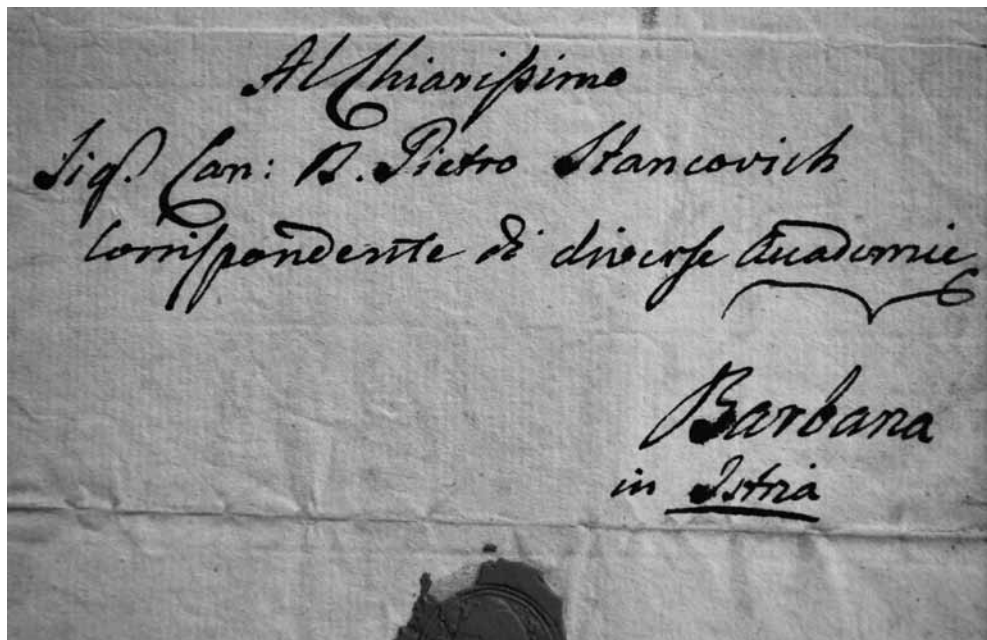 Al Chiarissimo
Sigr. Can: D. Pietro Stancovich
Corrispondente di diverse Accademie
Barbana
in Istria